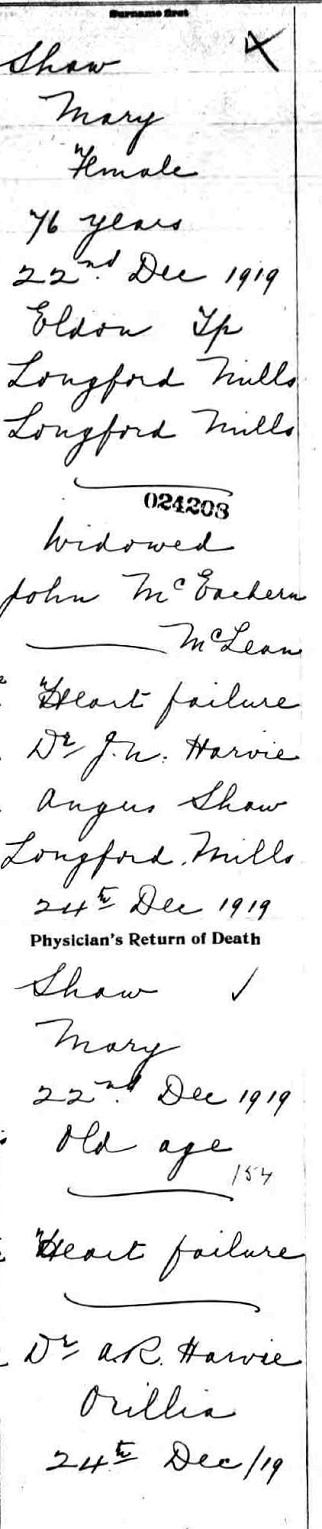 Surname first
Shaw
Mary
Female
76 years
22nd Dec 1919
Eldon Tp
Longford Mills
Longford Mills
024208
Widowed
John McEachern
McLean
Heart failure
Dr J. N. Harvie
Angus Shaw
Longford Mills
24th Dec 1919
Physician's Return of Death
Shaw ✓
Mary
22nd Dec 1919
Old age
154
Heart failure
Dr A.R. Harvie
Orillia
24th Dec/19